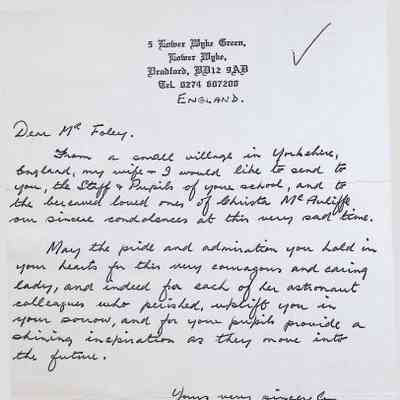 5 Lower Wyke Green,
Lower Wyke,
Bradford, BD12 9AD
Tel 0274 607200
ENGLAND.
Dear Mr Foley.
From a small village in Yorkshire,
England, my wife & I would like to send to
you, the Staff & Pupils of your school, and to
the bereaved loved ones of Christa McAuliffe
our sincere condolences at this very sad time.
May the pride and admiration you hold in
your hearts for this very courageous and caring
lady, and indeed for each of her astronaut
colleagues who perished, uplift you in
your sorrow, and for your pupils provide a
shining inspiration as they move into
the future.
Yours very sincerely